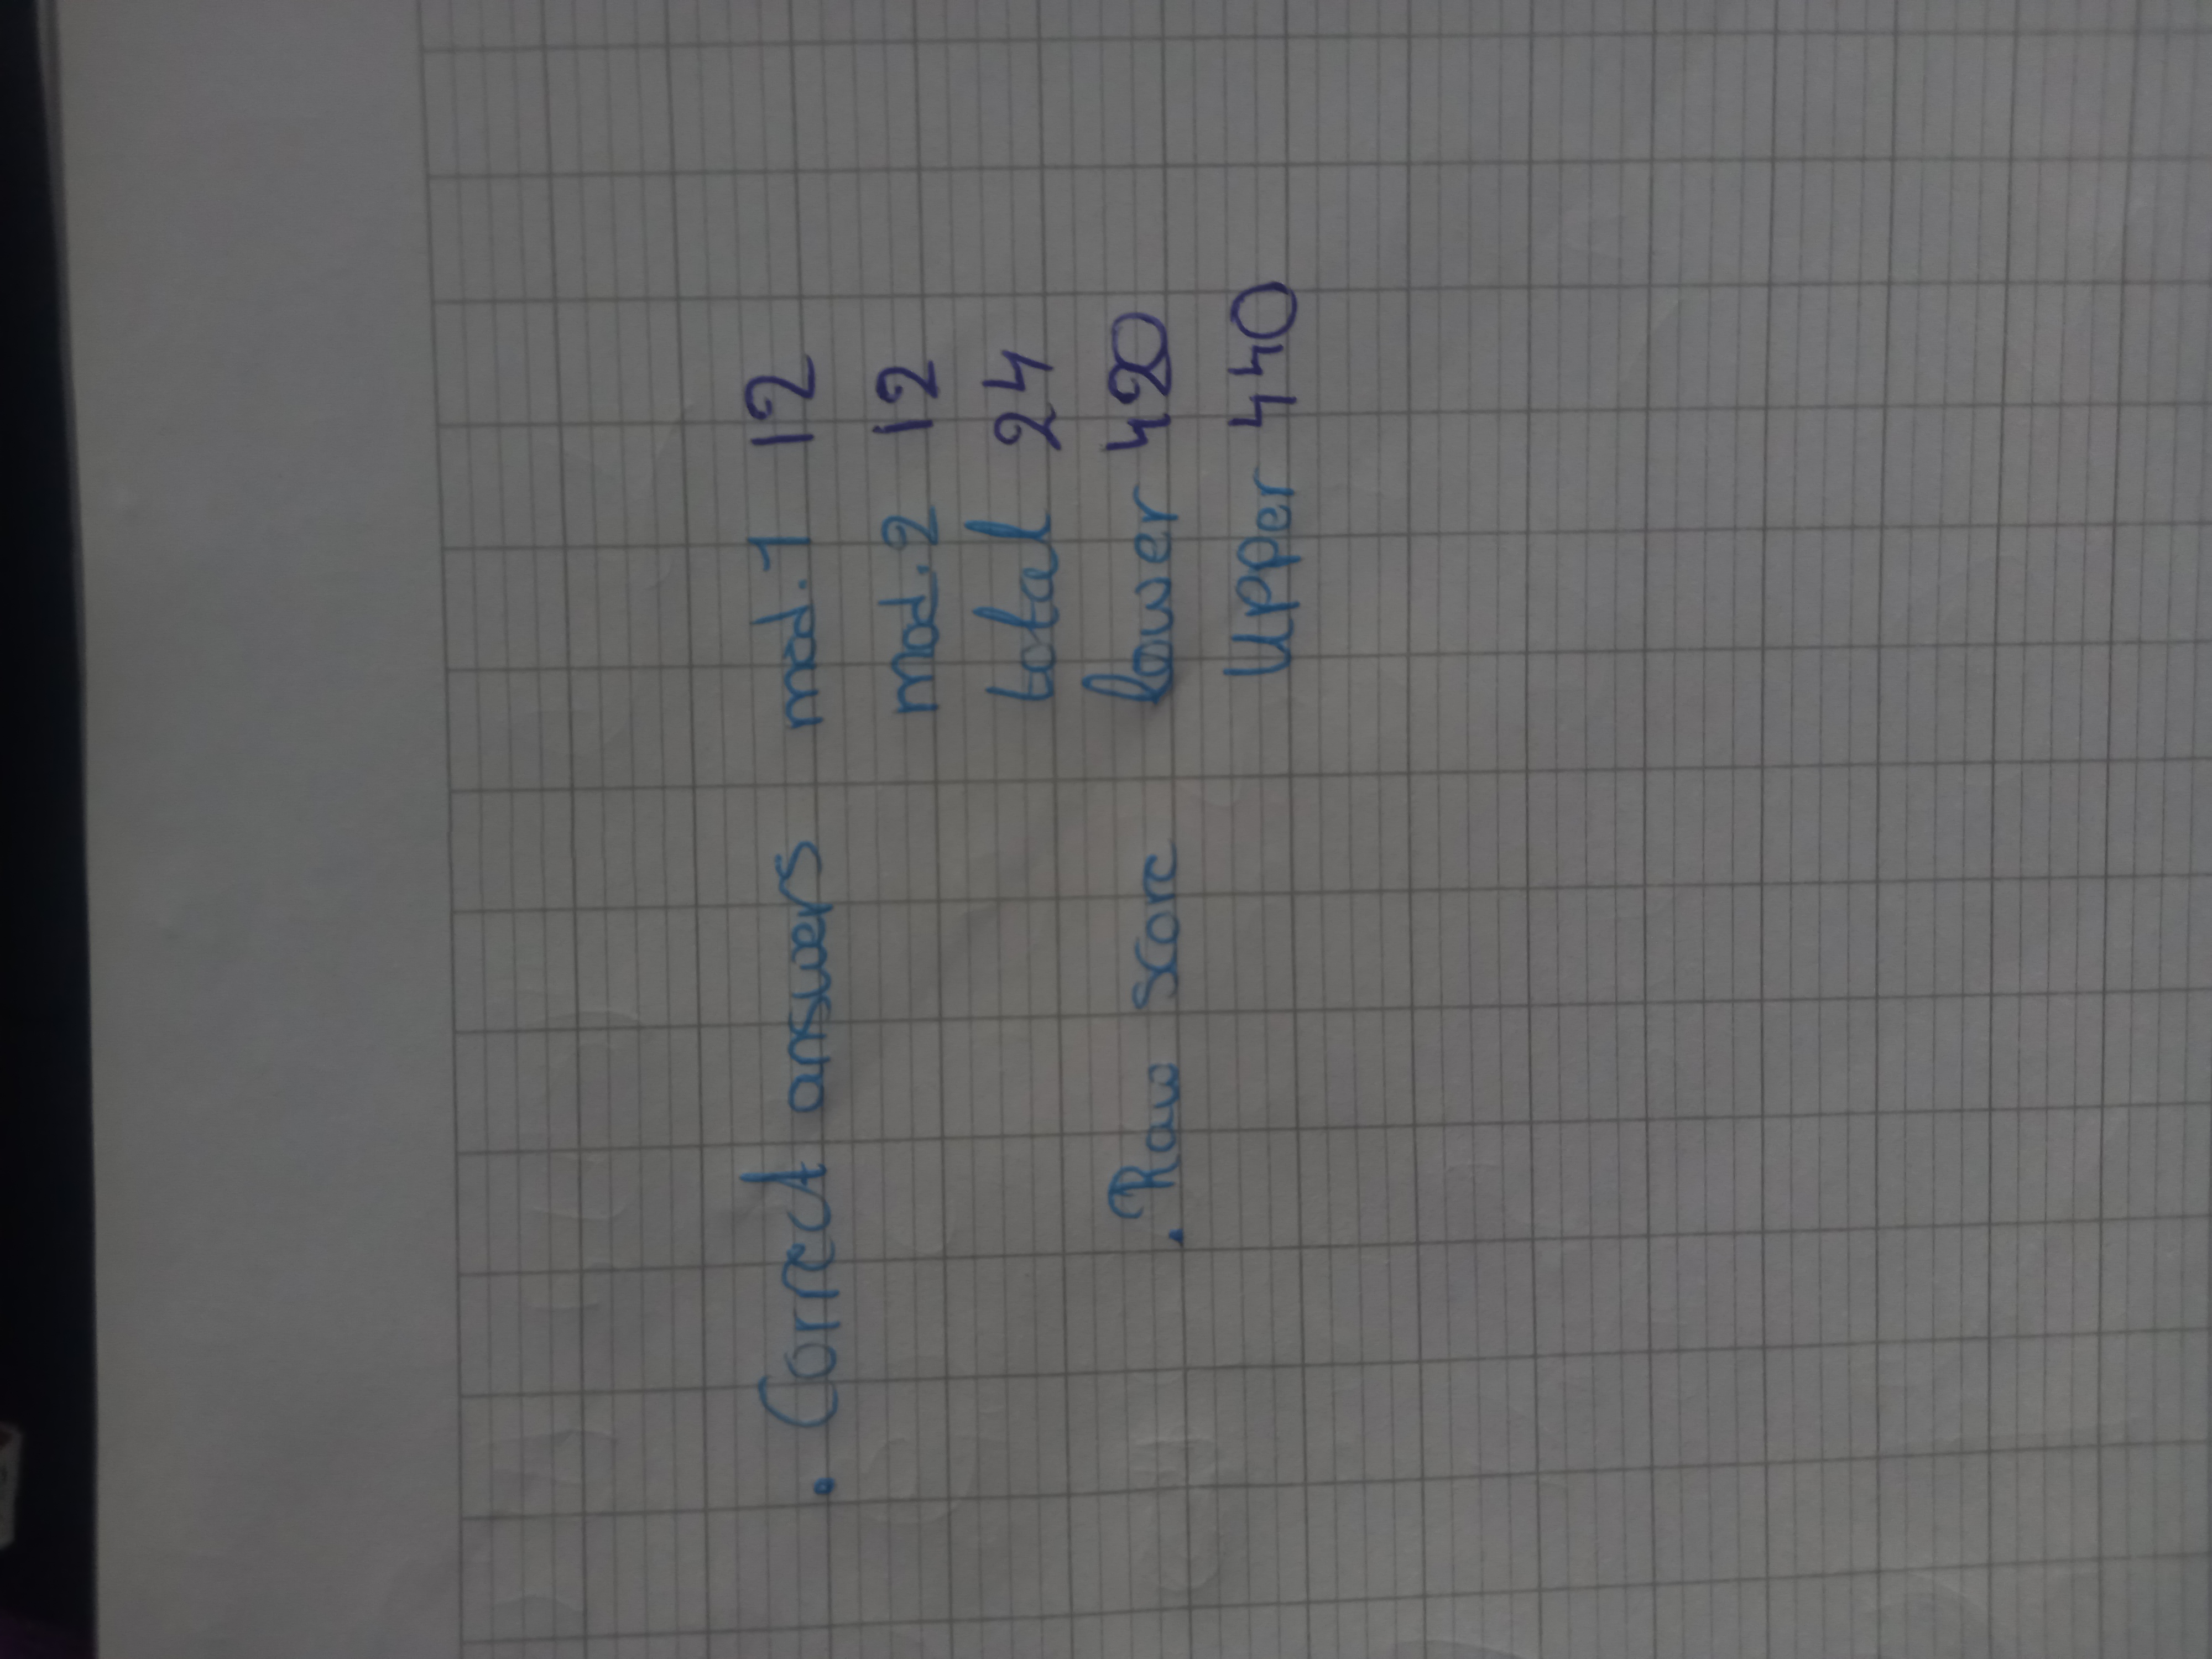 . Correct answers mod.1 12
mod.2 12
total 24
. Raw score lower 420
Upper 440